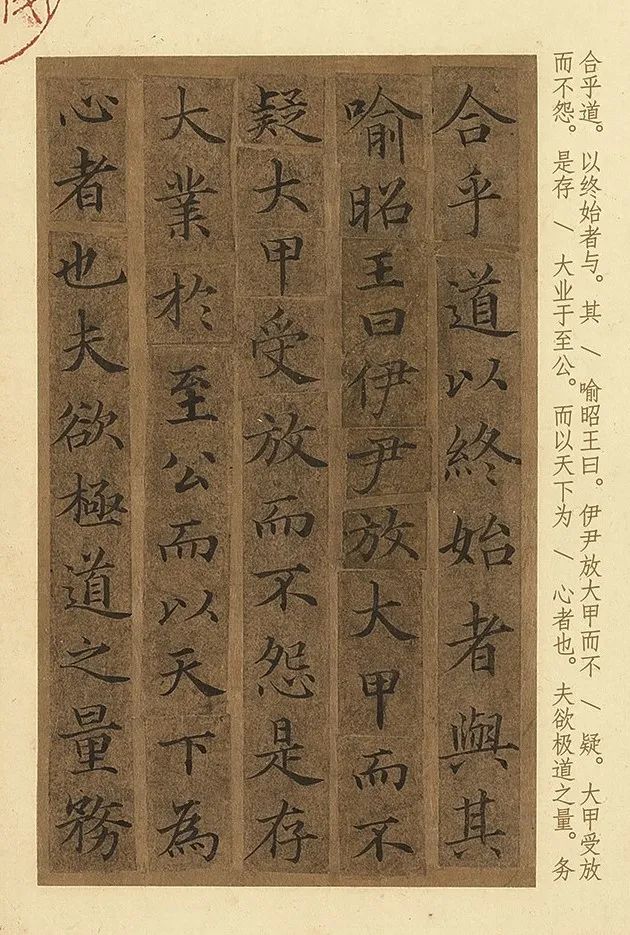 合乎道。以终始者与。其 \ 喻昭王曰。伊尹放大甲而不 \ 疑。大甲受放
而不怨。是存 \ 大业于至公。而以天下为 \ 心者也。夫欲极道之量。务
合乎道以終始者與其
喻昭王曰伊尹放大甲而不
疑大甲受放而不怨是存
大業於至公而以天下為
心者也夫欲極道之量務